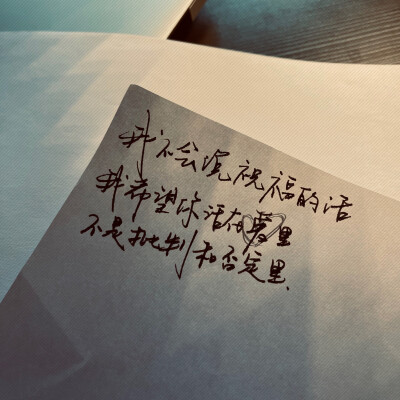 我不会说祝福的话
我希望你活在爱里
不是批判和否定里.